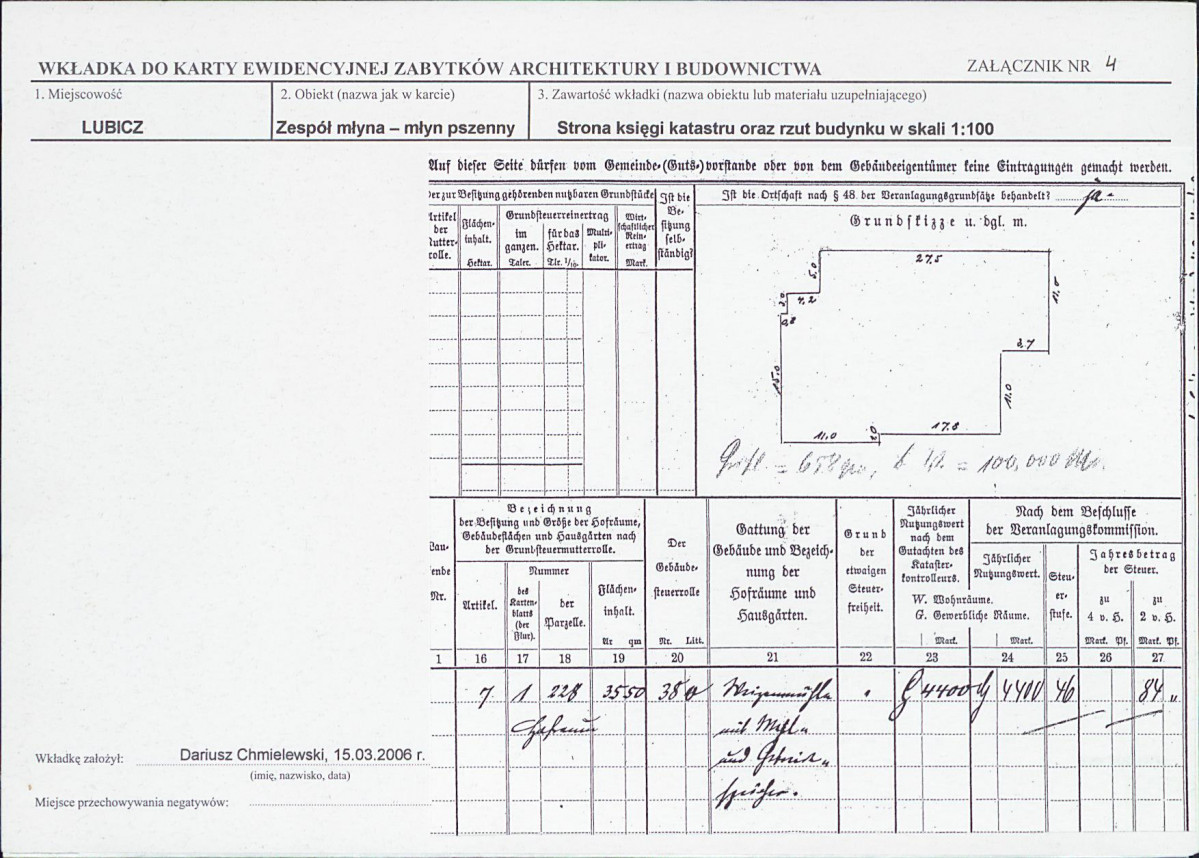 WKŁADKA DO KARTY EWIDENCYJNEJ ZABYTKÓW ARCHITEKTURY I BUDOWNICTWA
ZAŁĄCZNIK NR 4
1. Miejscowość
LUBICZ
2. Obiekt (nazwa jak w karcie)
Zespół młyna – młyn pszenny
3. Zawartość wkładki (nazwa obiektu lub materiału uzupełniającego)
Strona księgi katastru oraz rzut budynku w skali 1:100
Auf dieser Seite dürfen vom Gemeinde-(Guts-)vorstande oder von dem Gebäudeeigentümer keine Eintragungen gemacht werden.
der zur Besitzung gehörenden nutzbaren Grundstücke
Artikel
der
Mutter-
rolle.
Flächen-
inhalt.
Hektar.
Grundsteuerreinertrag
im
ganzen.
Taler.
für das
Hektar.
Tlr. 1/10.
Multi-
pli-
kator.
Wirt-
schaftlicher
Rein-
ertrag
Mark.
Ist die
Be-
sitzung
selb-
ständig?
Ist die Ortschaft nach § 48 der Veranlagungsgrundsätze behandelt? ja -
Grundskizze u. dgl. m.
27,5
5,0
11,0
4,2
2,0
0,8
3,7
15,0
11,0
17,8
2,0
11,0
= 658 qm, = 100,000
Bau-
ende
Nr.
1
Bezeichnung
der Besitzung und Größe der Hofräume,
Gebäudeflächen und Hausgärten nach
der Grundsteuermutterrolle.
Artikel.
16
Nummer
des
Karten-
blatts
(der
Flur).
17
der
Parzelle.
18
Flächen-
inhalt.
Ar qm
19
Der
Gebäude-
steuerrolle
Nr. Litt.
20
Gattung der
Gebäude und Bezeich-
nung der
Hofräume und
Hausgärten.
21
Grund
der
etwaigen
Steuer-
freiheit.
22
Jährlicher
Nutzungswert
nach dem
Gutachten des
Kataster-
kontrolleurs.
Nach dem Beschlusse
der Veranlagungskommission.
Jährlicher
Nutzungswert.
W. Wohnräume.
G. Gewerbliche Räume.
Mark.
23
Mark.
24
Steu-
er-
stufe.
25
Jahresbetrag
der Steuer.
zu
4 v. H.
Mark. Pf.
26
zu
2 v. H.
Mark. Pf.
27
7 1 228 3550 38 a Weizenmühle G 4400 G 4400 46 84 „
Hofraum mit Mehl-
und Getreide-
speicher.
Wkładkę założył: Dariusz Chmielewski, 15.03.2006 r.
(imię, nazwisko, data)
Miejsce przechowywania negatywów: